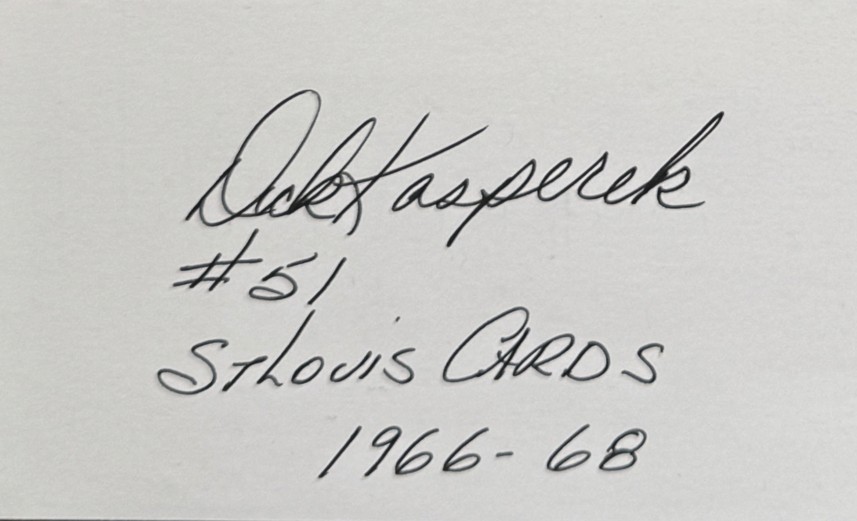 Dick Kasperek
#51
St Louis CARDS
1966-68